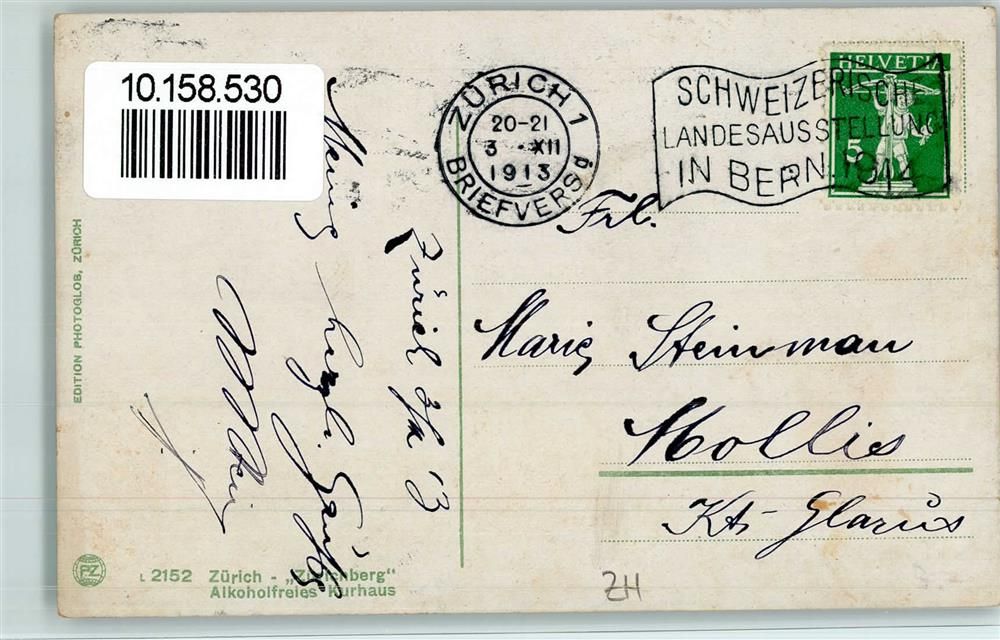 10.158.530
ZÜRICH 1
20-21
3 · XII
1913
BRIEFVERSd
SCHWEIZERISCHE
LANDESAUSSTELLUNG
IN BERN. 1914
HELVETIA
5
Zürich 3/XII 13
Meine herzl. Grüße
Frl.
Marie Steinman
Mollis
Kt. Glarus
EDITION PHOTOGLOB, ZÜRICH
PZ
L 2152 Zürich - „Zürichberg"
Alkoholfreies Kurhaus
ZH